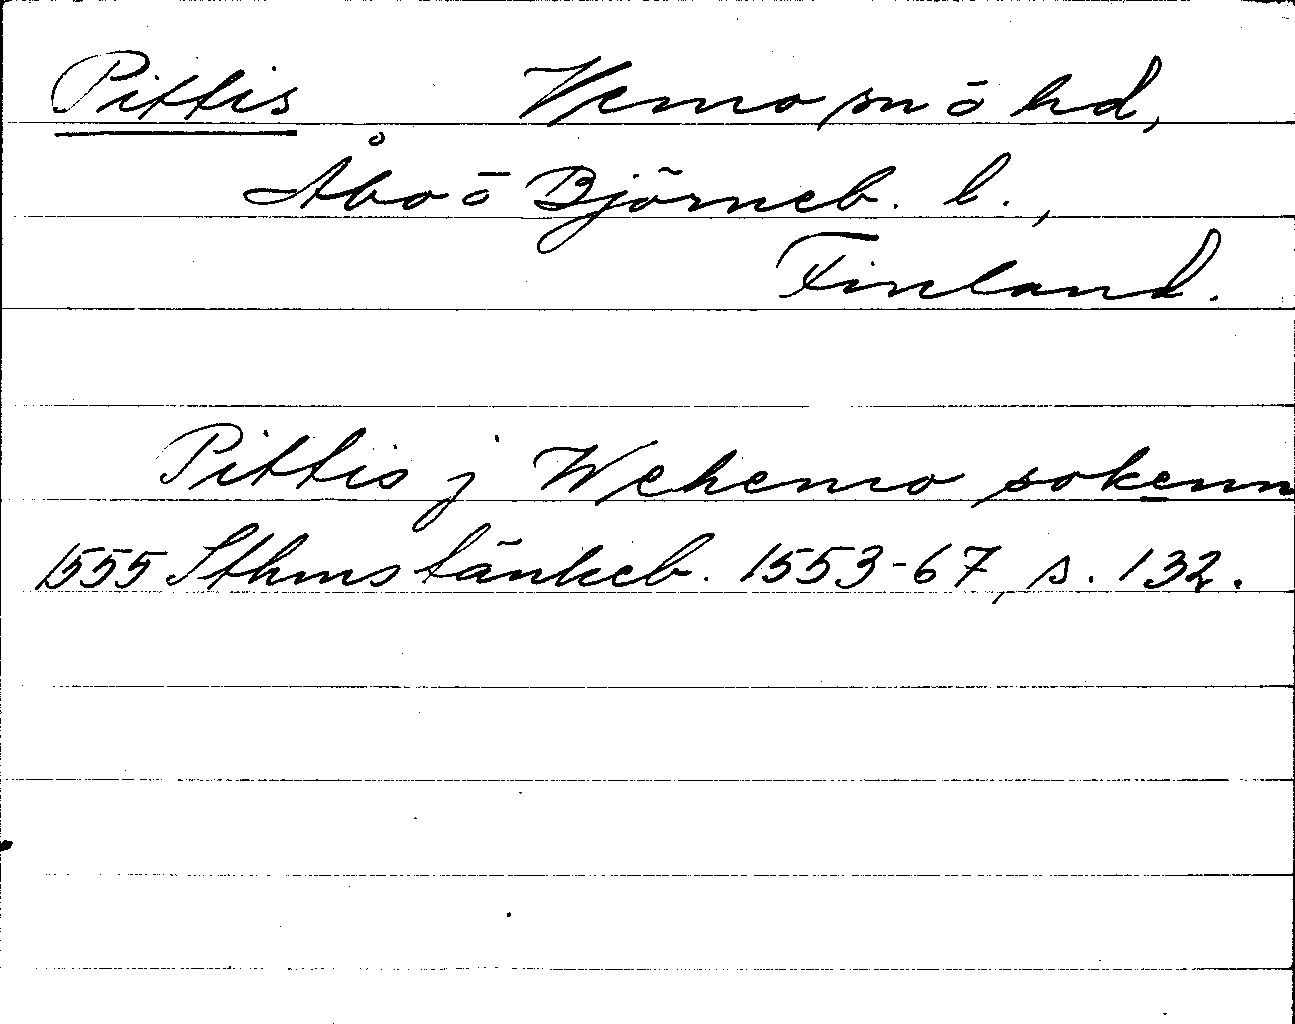 Pittis Vemo sn ō hd,
Åbo ō Björneb. l.,
Finland.
Pittis j Wehemo sokenn
1555 Sthms tänkeb. 1553-67, s. 132.